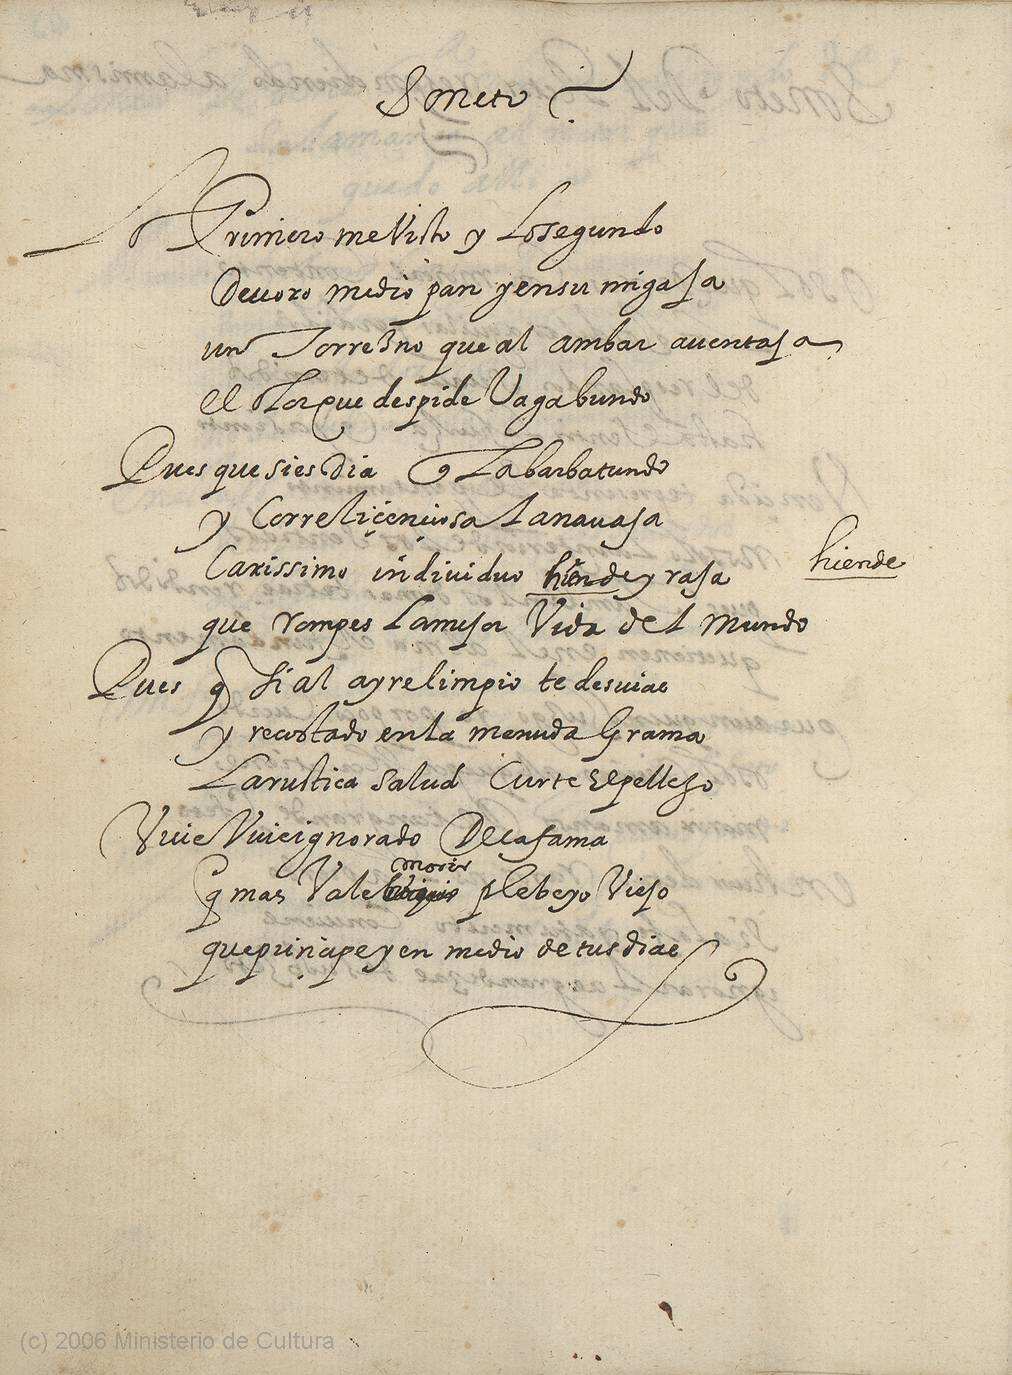 Soneto
Lo Primero me Visto y Lo segundo
Deuoro medio pan y en su migaja
un Torrezno que al ambar auentaja
el olor que despide Vagabundo
Pues que si es dia q La barba tundo
y Corre liçençiosa La nauaja
Carissimo indiuiduo hiende y raja
hiende
que rompes La mejor Vida del Mundo
Pues q si al ayre limpio te desuias
y recostado en la menuda Grama
La rustica salud Curte El pellejo
Viue Viue ignorado De la fama
morir
q mas Vale plebeyo Viejo
que prinçipe y en medio de tus dias
(c) 2006 Ministerio de Cultura